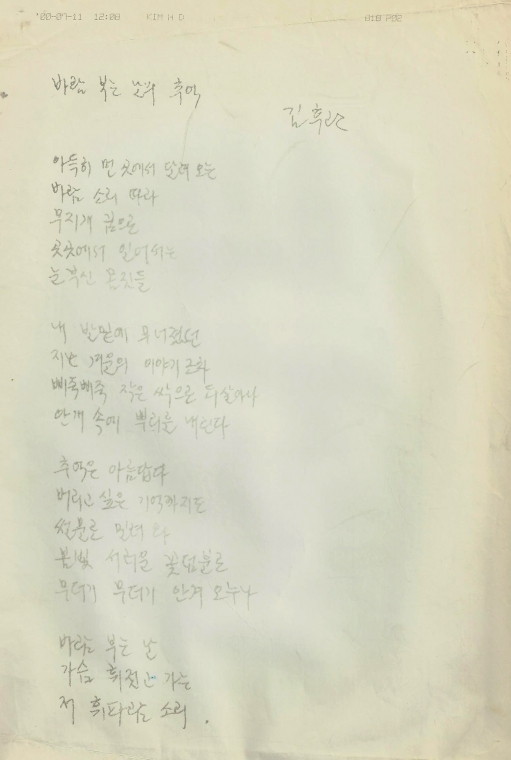 '00-07-11 12:08 KIM H D 818 P02
바람 부는 날의 추억
김후란
아득히 먼 곳에서 달려 오는
바람 소리 따라
무지개 꿈으로
곳곳에서 일어서는
눈부신 몸짓들
내 발밑에 무너졌던
지난 겨울의 이야기 조차
삐죽삐죽 작은 싹으로 되살아나
안개 속에 뿌리를 내린다
추억은 아름답다
버리고 싶은 기억까지도
썰물로 밀려 와
봄빛 서러운 꽃덤불로
무더기 무더기 안겨 오누나
바람 부는 날
가슴 휘젓고 가는
저 휘파람 소리 .